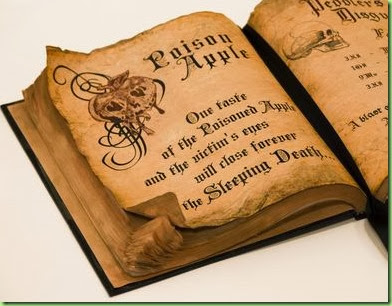 Poison
Apple
One taste
of the Poisoned Apple
and the victim's eyes
will close forever
the Sleeping Death...
Peddler's
A blast